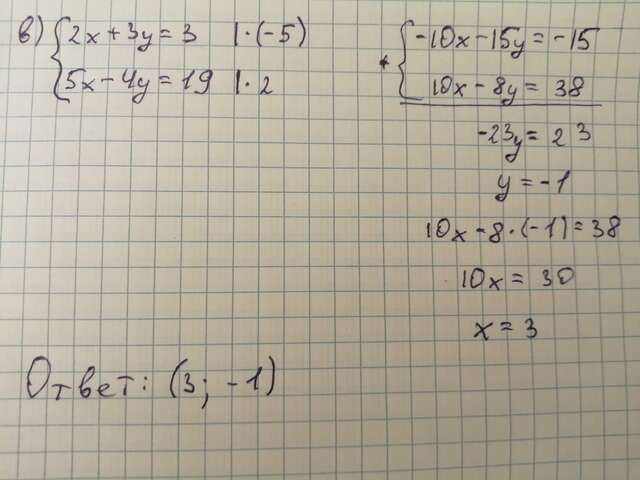 в) 2x + 3y = 3 | · (-5)
5x - 4y = 19 | · 2
+ -10x - 15y = -15
10x - 8y = 38
-23y = 23
y = -1
10x - 8 · (-1) = 38
10x = 30
x = 3
Ответ: (3; -1)